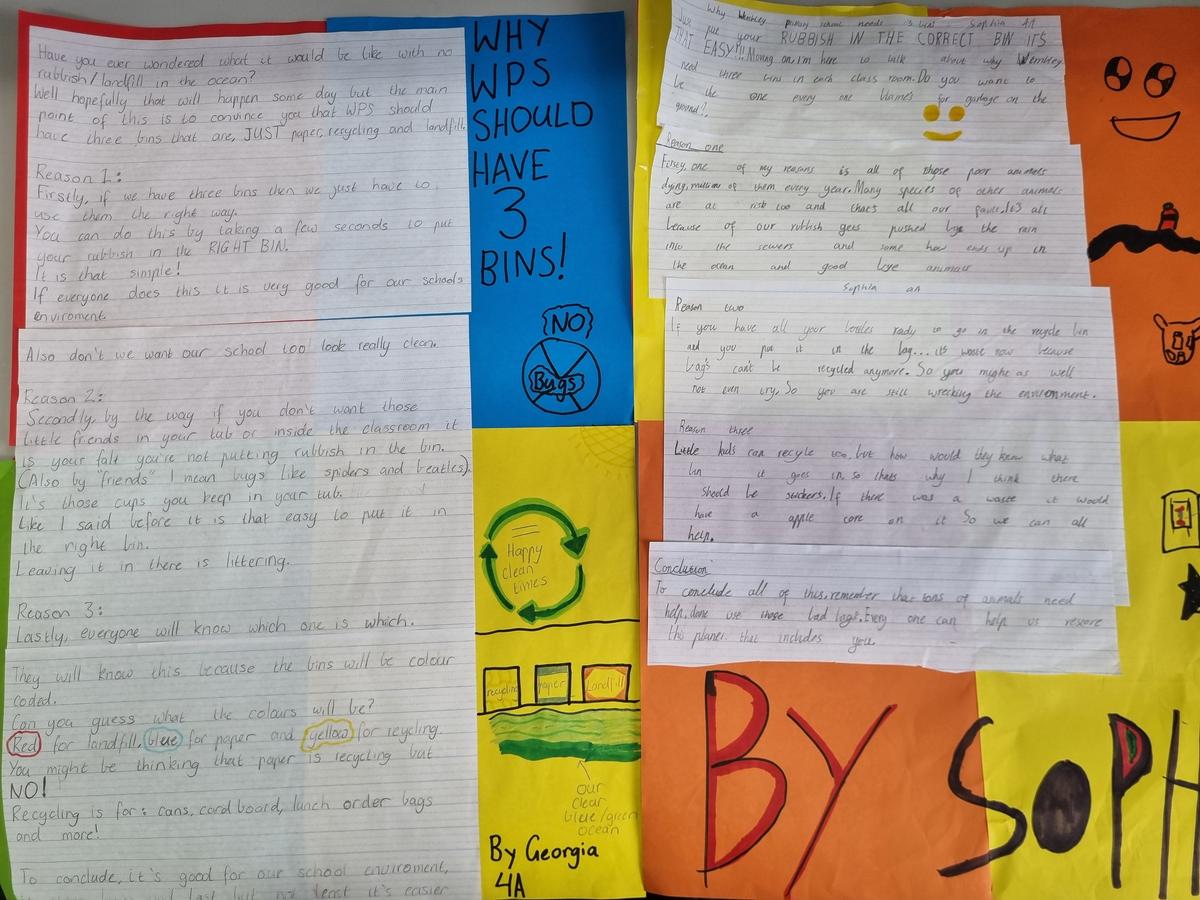 Have you ever wondered what it would be like with no
rubbish/landfill in the ocean?
Well hopefully that will happen some day but the main
point of this is to convince you that WPS should
have three bins that are, JUST paper, recycling and landfill.
Reason 1:
Firstly, if we have three bins then we just have to
use them the right way.
You can do this by taking a few seconds to put
your rubbish in the RIGHT BIN.
It is that simple!
If everyone does this it is very good for our schools
enviroment.
Also don't we want our school too look really clean.
Reason 2:
Secondly, by the way if you don't want those
little friends in your tub or inside the classroom it
is your falt you're not putting rubbish in the bin.
(Also by "friends" I mean bugs like spiders and beatles).
It's those cups you keep in your tub.
Like I said before it is that easy to put it in
the right bin.
Leaving it in there is littering.
Reason 3:
Lastly, everyone will know which one is which.
They will know this because the bins will be colour
coded.
Can you guess what the colours will be?
Red for landfill, blue for paper and yellow for recycling.
You might be thinking that paper is recycling but
NO!
Recycling is for: cans, card board, lunch order bags
and more!
To conclude, it's good for our school enviroment,
last but not least it's easier
WHY
WPS
SHOULD
HAVE
3
BINS!
NO
Bugs
Happy
clean
times
recycling
paper
Landfill
our
clear
blue/green
ocean
By Georgia
4A
Why Wembley primary school needs 3 bins - Sophia 4A
Just put your RUBBISH IN THE CORRECT BIN IT'S
THAT EASY!!! Moving on, I'm here to talk about why Wembley
need three bins in each class room. Do you want to
be the one every one blames for garbage on the
ground?
Reason one
Firsly, one of my reasons is all of those poor animals
dying, millions of them every year. Many species of other animals
are at risk too and that's all our fault. It's all
because of our rubbish gets pushed by the rain
into the sewers and some how ends up in
the ocean and good bye animals
Sophia 4A
Reason two
If you have all your bottles rady to go in the recycle bin
and you put it in the bag... it's waste now because
bag's can't be recycled anymore. So you might as well
not even try, So you are still wrecking the environment.
Reason three
Little kids can recycle too, but how would they know what
bin it goes in, so thats why I think there
should be stickers. If there was a waste it would
have a apple core on it So we can all
help.
Conclusion
To conclude all of this, remember that tons of animals need
help, done use those bad bags. Every one can help us restore
this planet that includes you.
BY SOPH